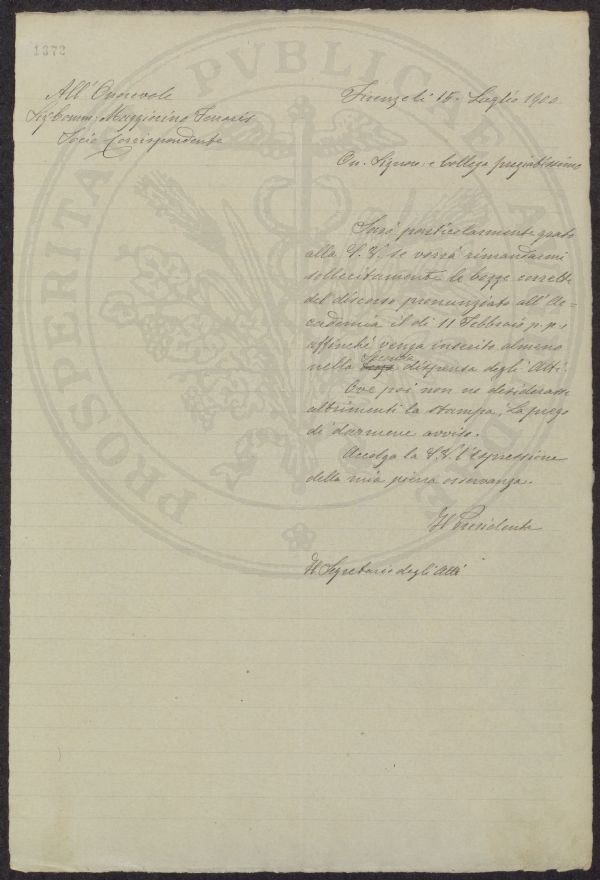 1372
All' Onorevole
Sig. Comm. Maggiorino Ferraris
Socio Corrispondente
Firenze li 15. Luglio 1900
On. Signore e Collega pregiatissimo
Sarò particolarmente grato
alla S. V. se vorrà rimandarmi
sollecitamente le bozze corrette
del discorso pronunziato all' Ac=
cademia il dì 11 Febbraio p. p.,
affinché venga inserito almeno
nella seconda dispensa degli Atti.
Ove poi non ne desiderasse
altrimenti la stampa, La prego
di darmene avviso.
Accolga la S. V. l'espressione
della mia piena osservanza.
Il Presidente
Il Segretario degli Atti
PROSPERITA PVBLICAE